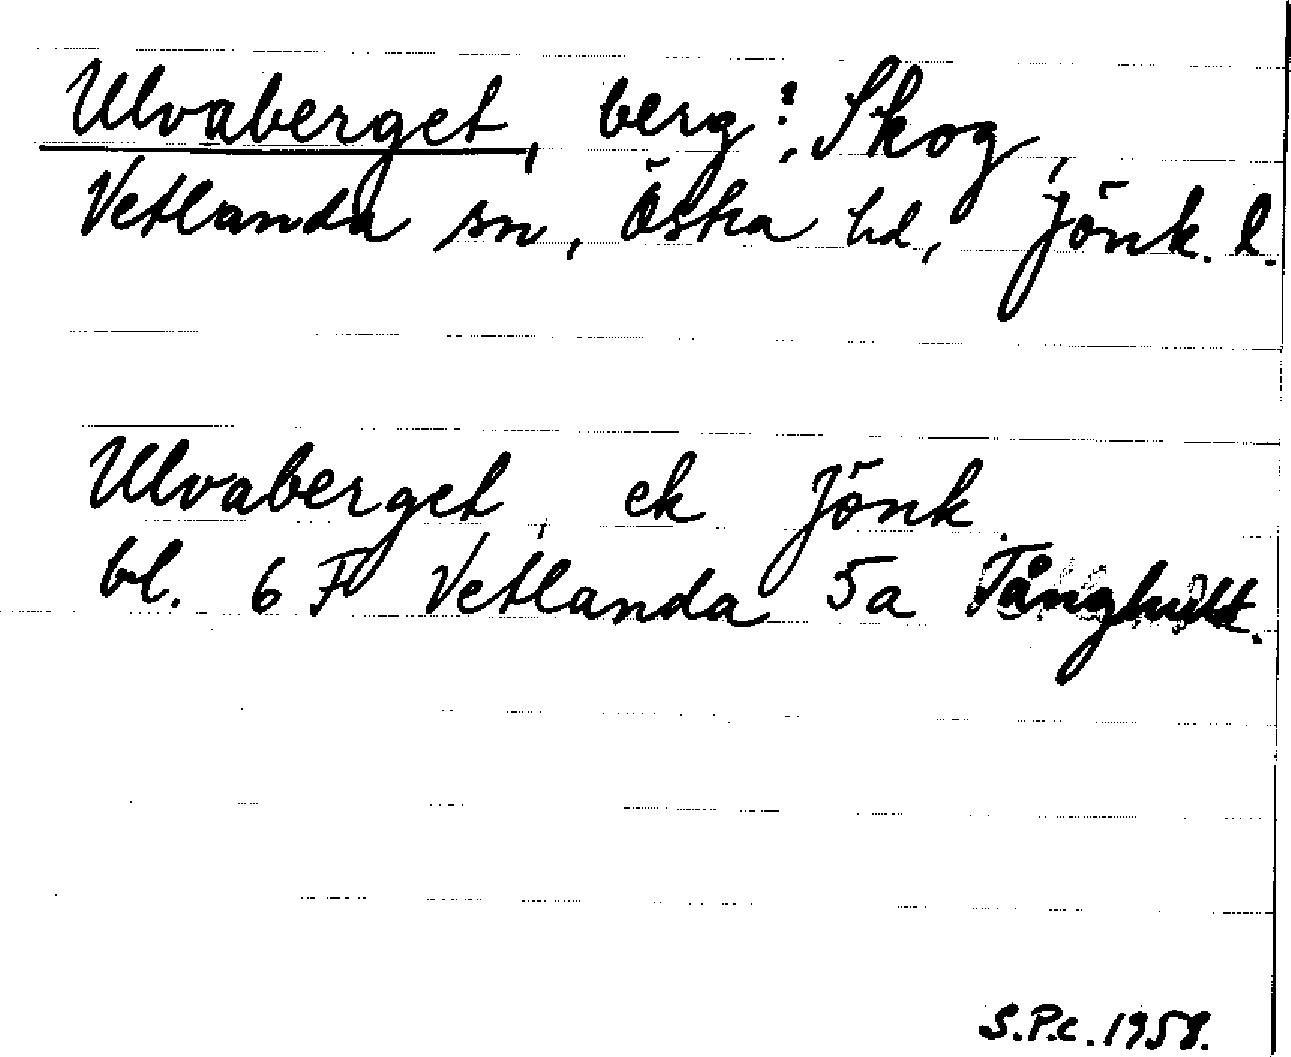 Ulvaberget, berg? Skog,
Vetlanda sn, Östra hd, Jönk. l.
Ulvaberget, ek Jönk
bl. 6 F Vetlanda 5a Tånghult.
S.P.c. 1958.